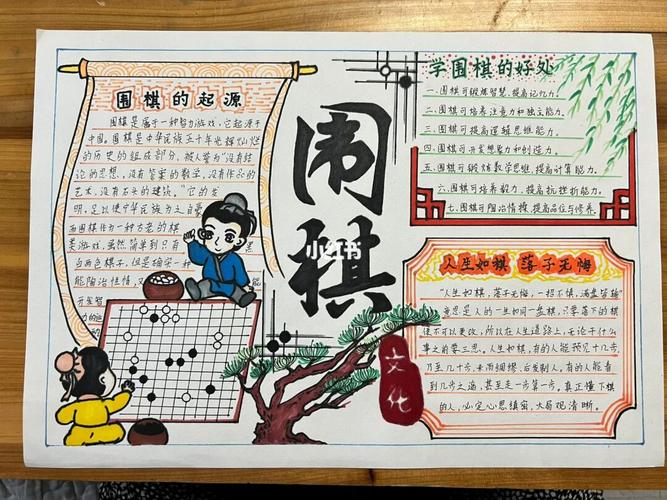 围棋的起源
围棋是属于一种智力游戏，它起源于
中国。围棋是中华民族五千年光辉灿烂
的历史的组成部分，被人誉为"没有结
论的思想，没有答案的数学，没有作品的
艺术，没有石头的建筑。"它的发
明，足以使中华民族为之自豪
而围棋作为一种古老的棋
类游戏，虽然简单到只有
与两色棋子，但是确是一种
能陶冶性情，
开发智
力的运
围棋
小红书
文化
学围棋的好处
一、围棋可锻炼智慧，提高记忆力。
二、围棋可培养注意力和独立能力。
三、围棋可提高逻辑思维能力。
四、围棋可开发想象力和创造力。
五、围棋可锻炼数学思维，提高计算能力。
六、围棋可培养毅力，提高抗挫折能力。
七、围棋可陶冶情操，提高品位与修养。
人生如棋 落子无悔
"人生如棋，落子无悔，一招不慎，满盘皆输"
意思是人的一生如同一盘棋，只要落下的棋
便不可以更改，所以在人生道路上，无论干什么
事之前要三思。人生如棋，有的人能预见十几步，
乃至几十步，未雨绸缪，后发制人，有的人能看
到几步之遥，甚至走一步算一步，真正懂下棋
的人，必定心思缜密，大局观清晰。